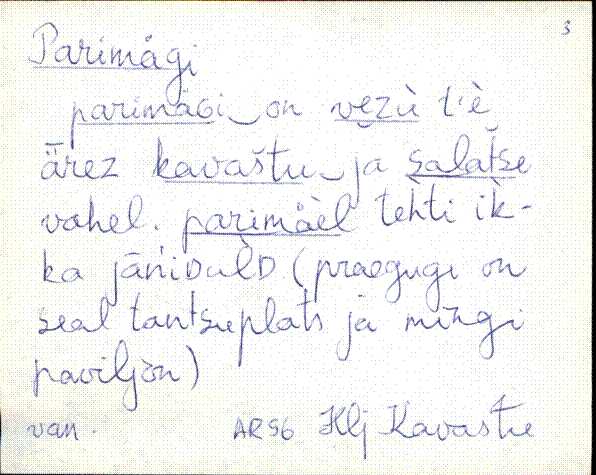 3
Parimägi
parimäGi‿on vezù t'è
ärez kavaštu‿ja salatše
vahel. parimäèl tehti ik-
ka jāńiDulD (praegugi on
seal tantsuplats ja mingi
paviljon)
van. AR56 Hlj Kavastu